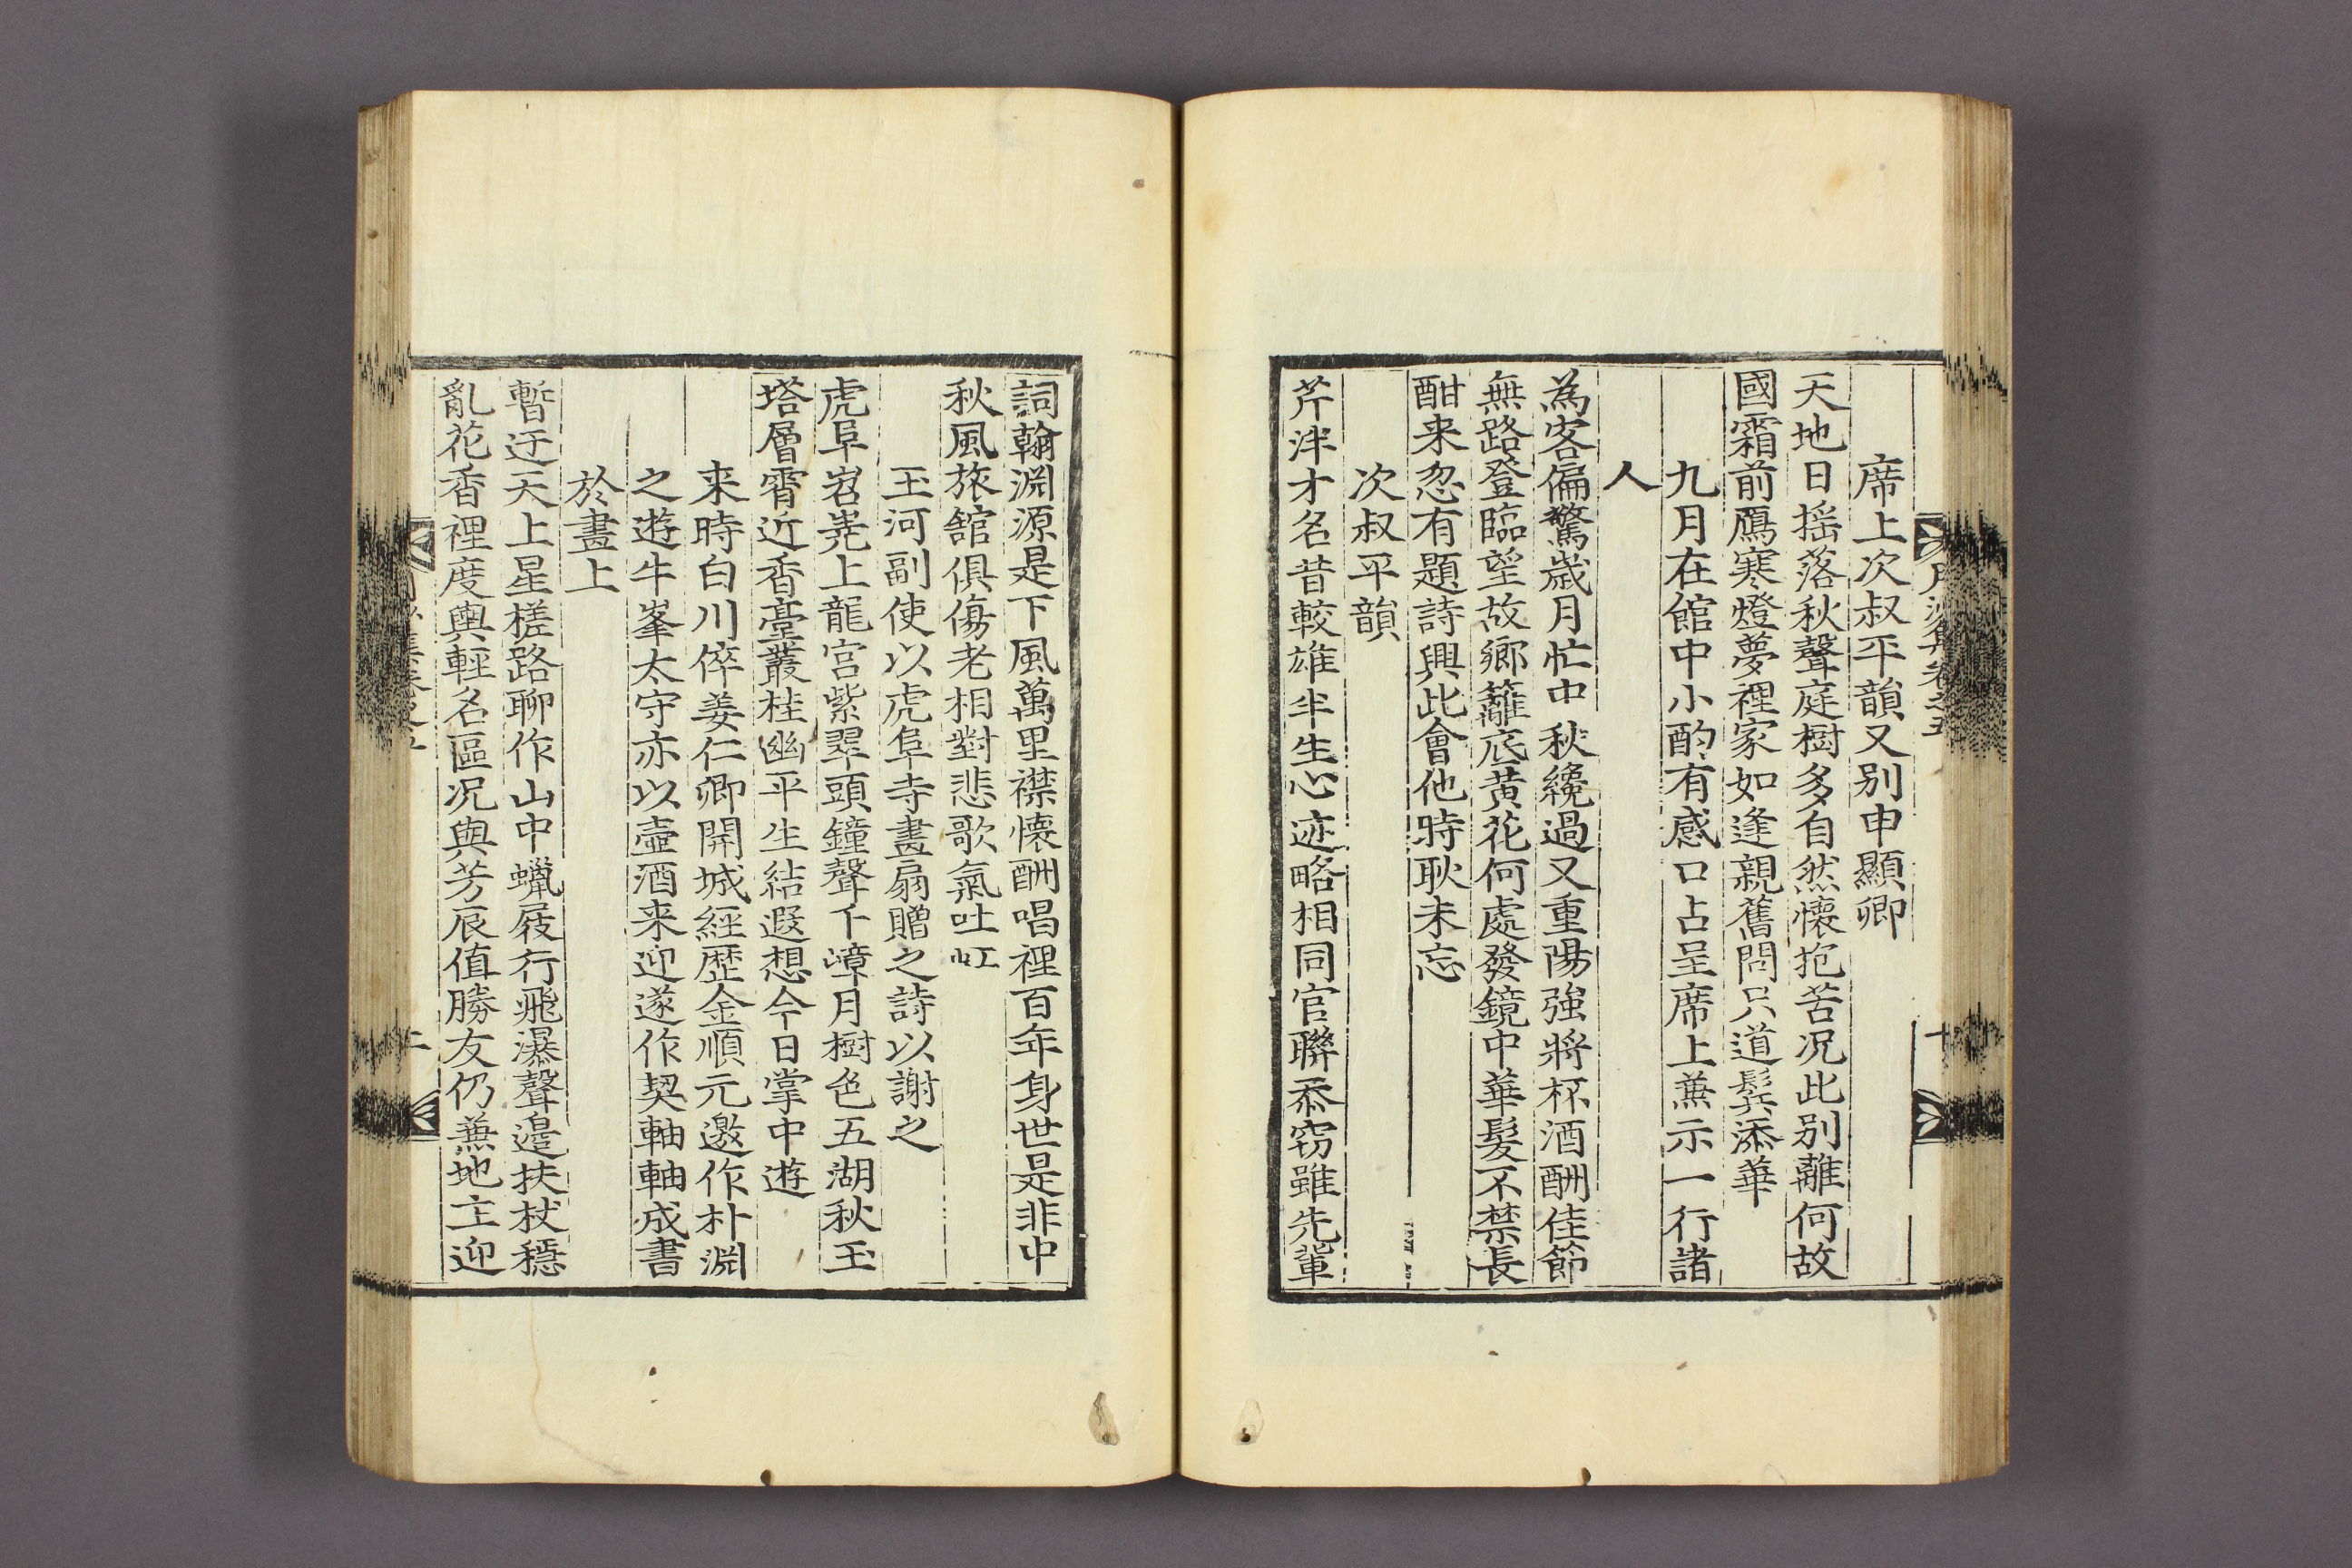 席上次叔平韻又别申顯卿
天地日搖落秋聲庭樹多自然懷抱苦况此别離何故
國霜前鴈寒燈夢裡家如逢親舊問只道鬂添華
九月在館中小酌有感口占呈席上蕪示一行諸
人
為客偏驚歲月忙中秋纔過又重陽強將杯酒酬佳節
無路登臨望故鄉籬底黄花何處發鏡中華髮不禁長
酣来忽有題詩興此會他時耿未忘
次叔平韻
芹泮才名昔較雄半生心迹略相同官聯忝窃雖先輩
詞翰淵源是下風萬里襟懷酬唱裡百年身世是非中
秋風旅舘俱傷老相對悲歌氣吐虹
玉河副使以虎阜寺畫扇贈之詩以謝之
虎阜岧嶤上龍宫紫翠頭鐘聲千嶂月樹色五湖秋玉
塔層霄近香臺叢桂幽平生結遐想今日掌中遊
来時白川倅姜仁卿開城經歷金順元邀作朴淵
之遊牛峯太守亦以壺酒来迎遂作契軸軸成書
於畫上
暫迂天上星槎路聊作山中蠟屐行飛瀑聲邊扶杖穩
亂花香裡度輿輕名區况與芳辰值勝友仍蕪地主迎